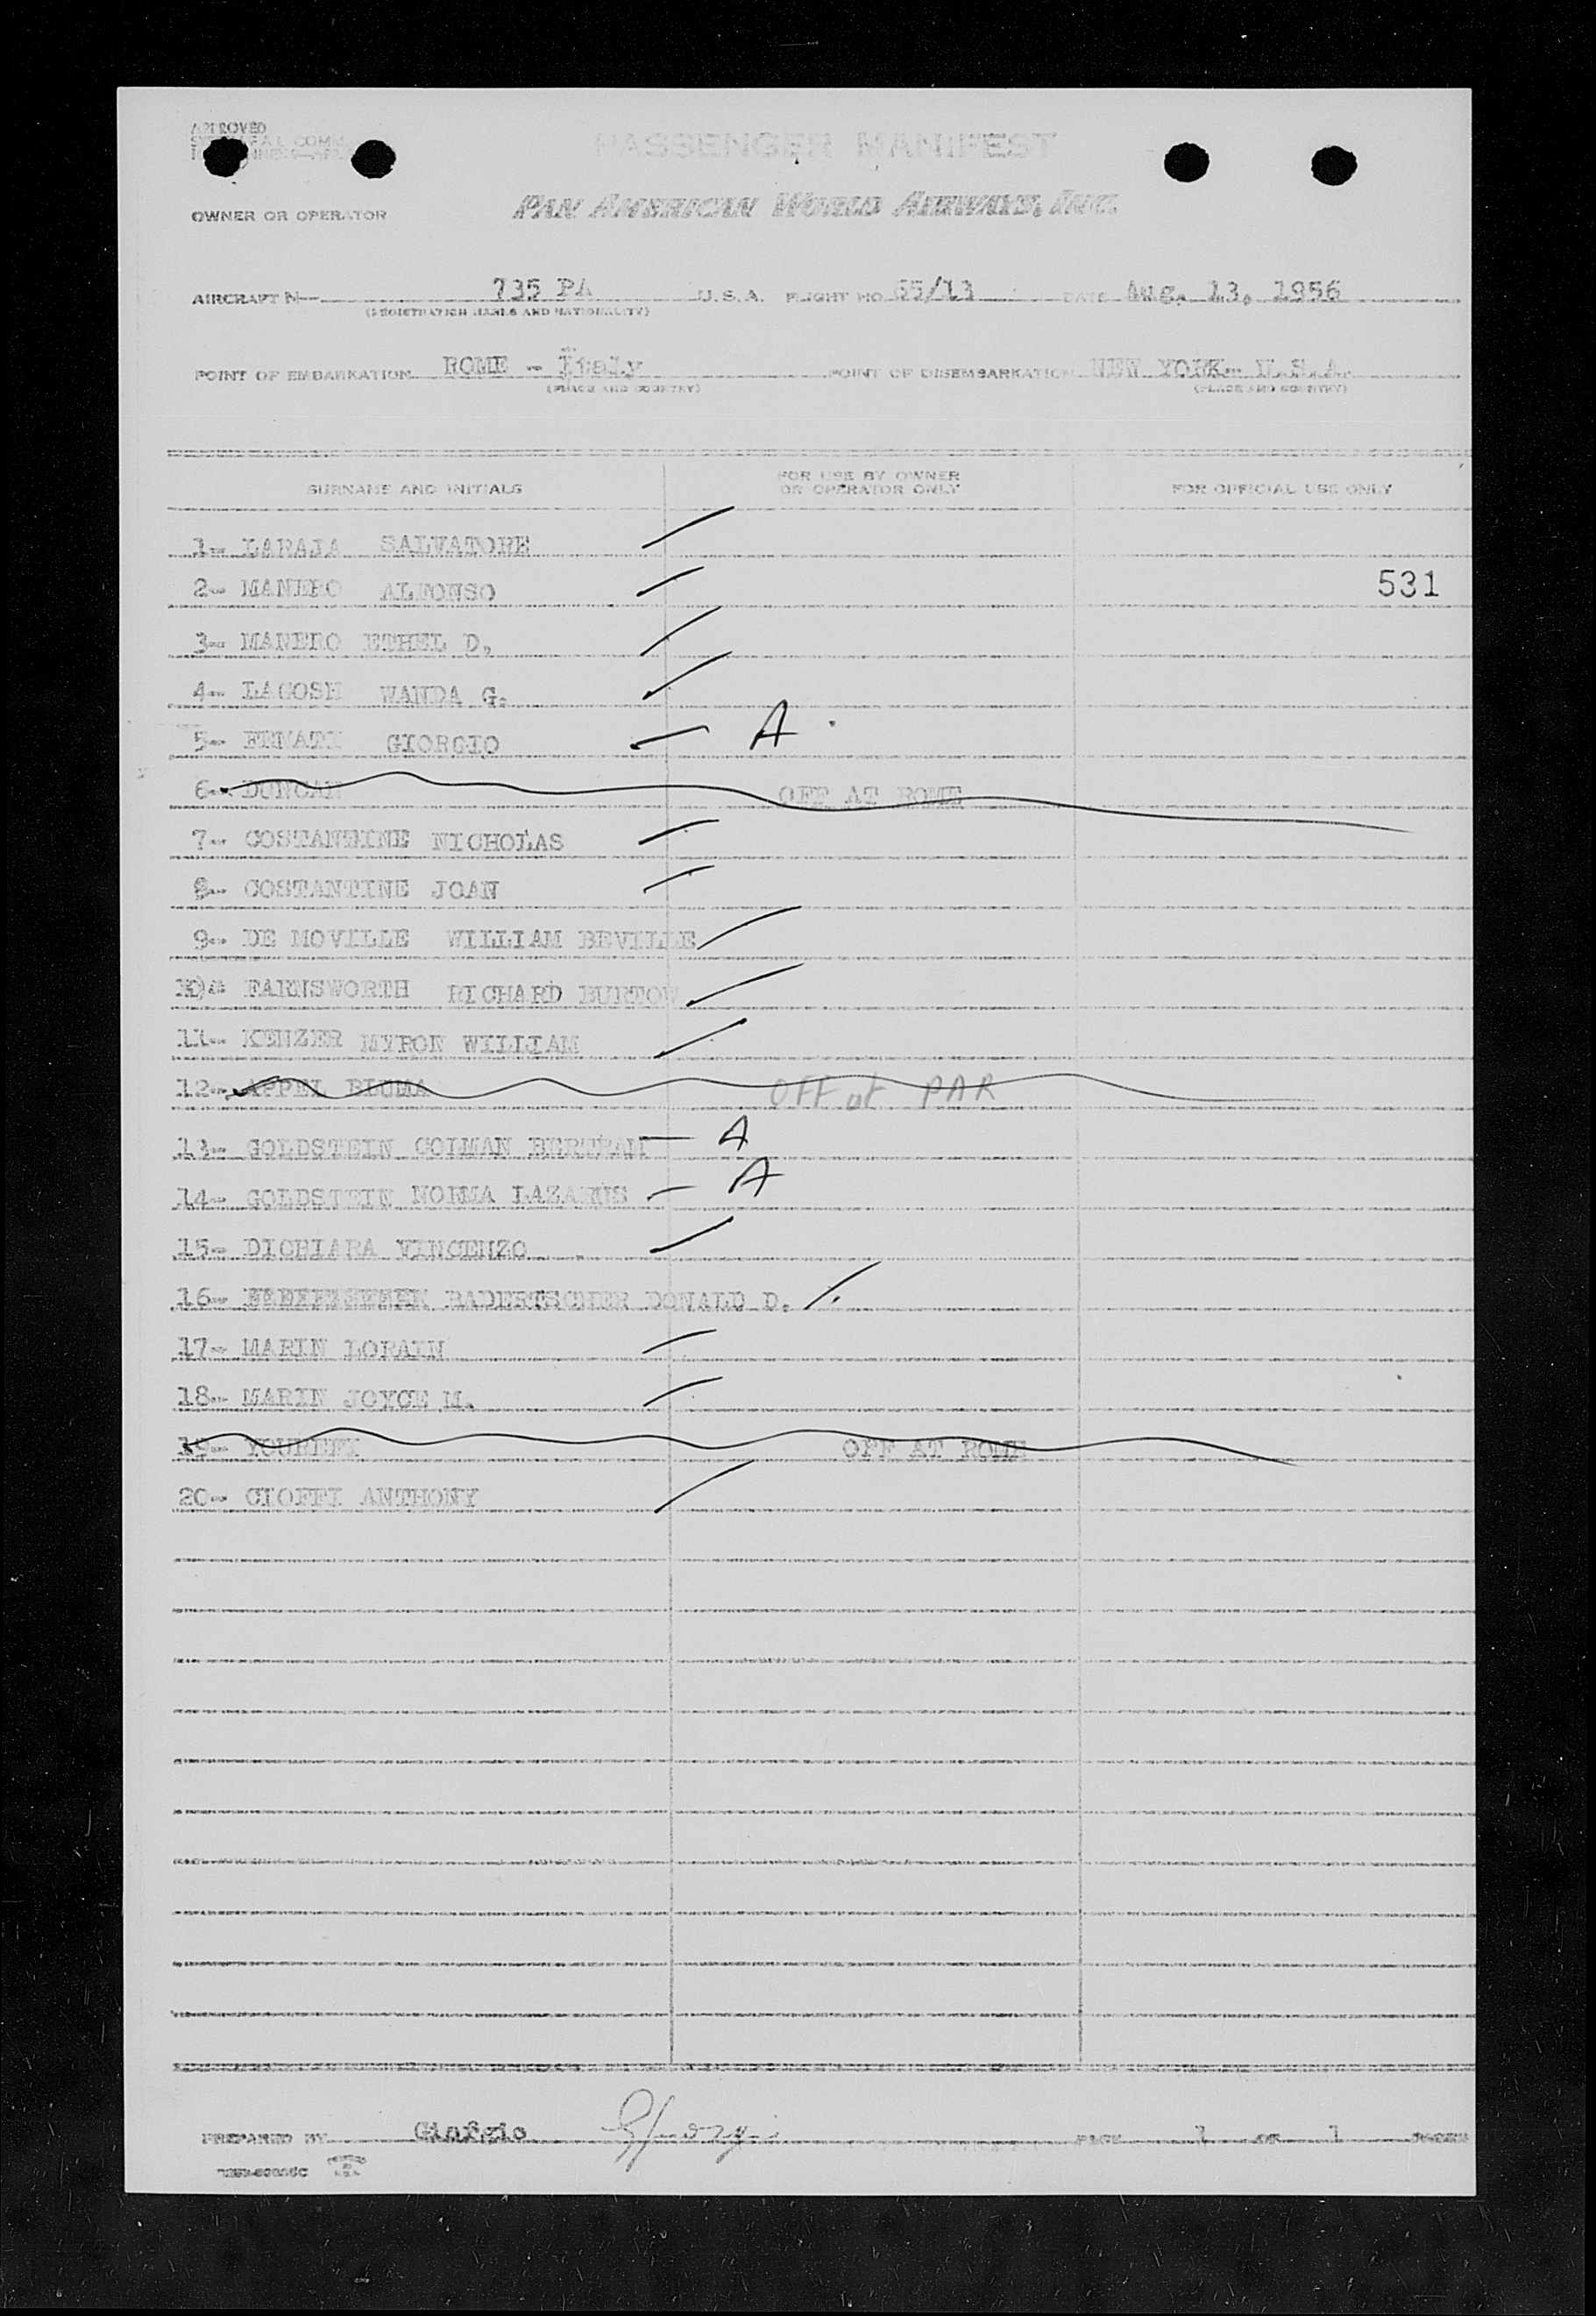 APPROVED
PASSENGER MANIFEST
OWNER OR OPERATOR PAN AMERICAN WORLD AIRWAYS, INC.
AIRCRAFT N 735 PA U.S.A. FLIGHT NO. 65/13 DATE Aug. 13, 1956
(REGISTRATION MARKS AND NATIONALITY)
POINT OF EMBARKATION ROME - Italy POINT OF DISEMBARKATION NEW YORK- U.S.A.
(PLACE AND COUNTRY) (PLACE AND COUNTRY)
SURNAME AND INITIALS FOR USE BY OWNER OR OPERATOR ONLY FOR OFFICIAL USE ONLY
1- LARAJA SALVATORE
2- MANERO ALFONSO 531
3- MANERO ETHEL D.
4- LACOSH WANDA G.
5- GIORGIO A
6- DUNCAN OFF AT ROME
7- COSTANTINE NICHOLAS
8- COSTANTINE JOAN
9- DE MOVILLE WILLIAM BEVILLE
10- FARNSWORTH RICHARD BURTON
11- KENZER MYRON WILLIAM
12- APPEL BLUMA OFF at PAR
13- GOLDSTEIN COLMAN BERTRAM A
14- GOLDSTEIN NORMA LAZARUS A
15- DICHIARA VINCENZO
16- BADERTSCHER DONALD D.
17- MARIN LORAIN
18- MARIN JOYCE M.
19- OFF AT ROME
20- CIOFFI ANTHONY
PREPARED BY Giorgio PAGE 1 OF 1 PAGES